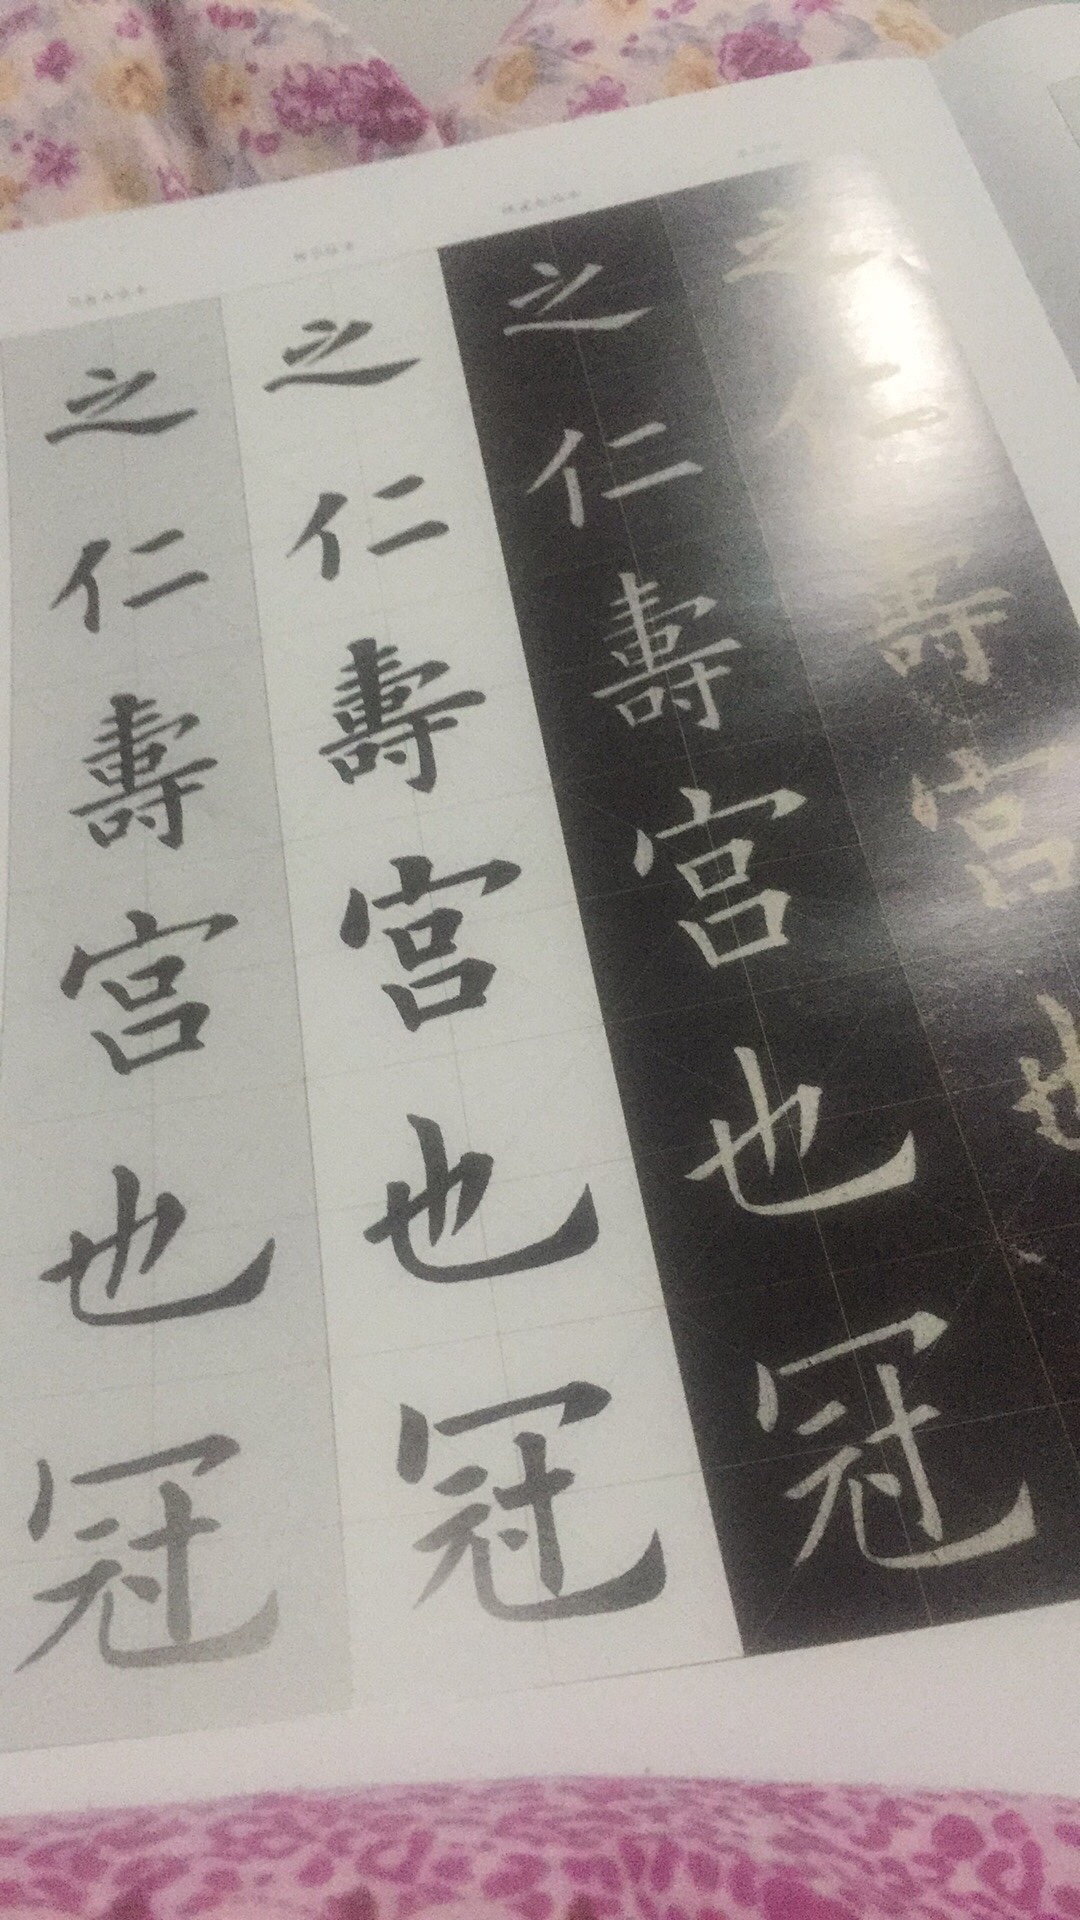 之仁壽宮也
之仁壽宮也冠
之仁壽宮也冠
之仁壽宮也冠